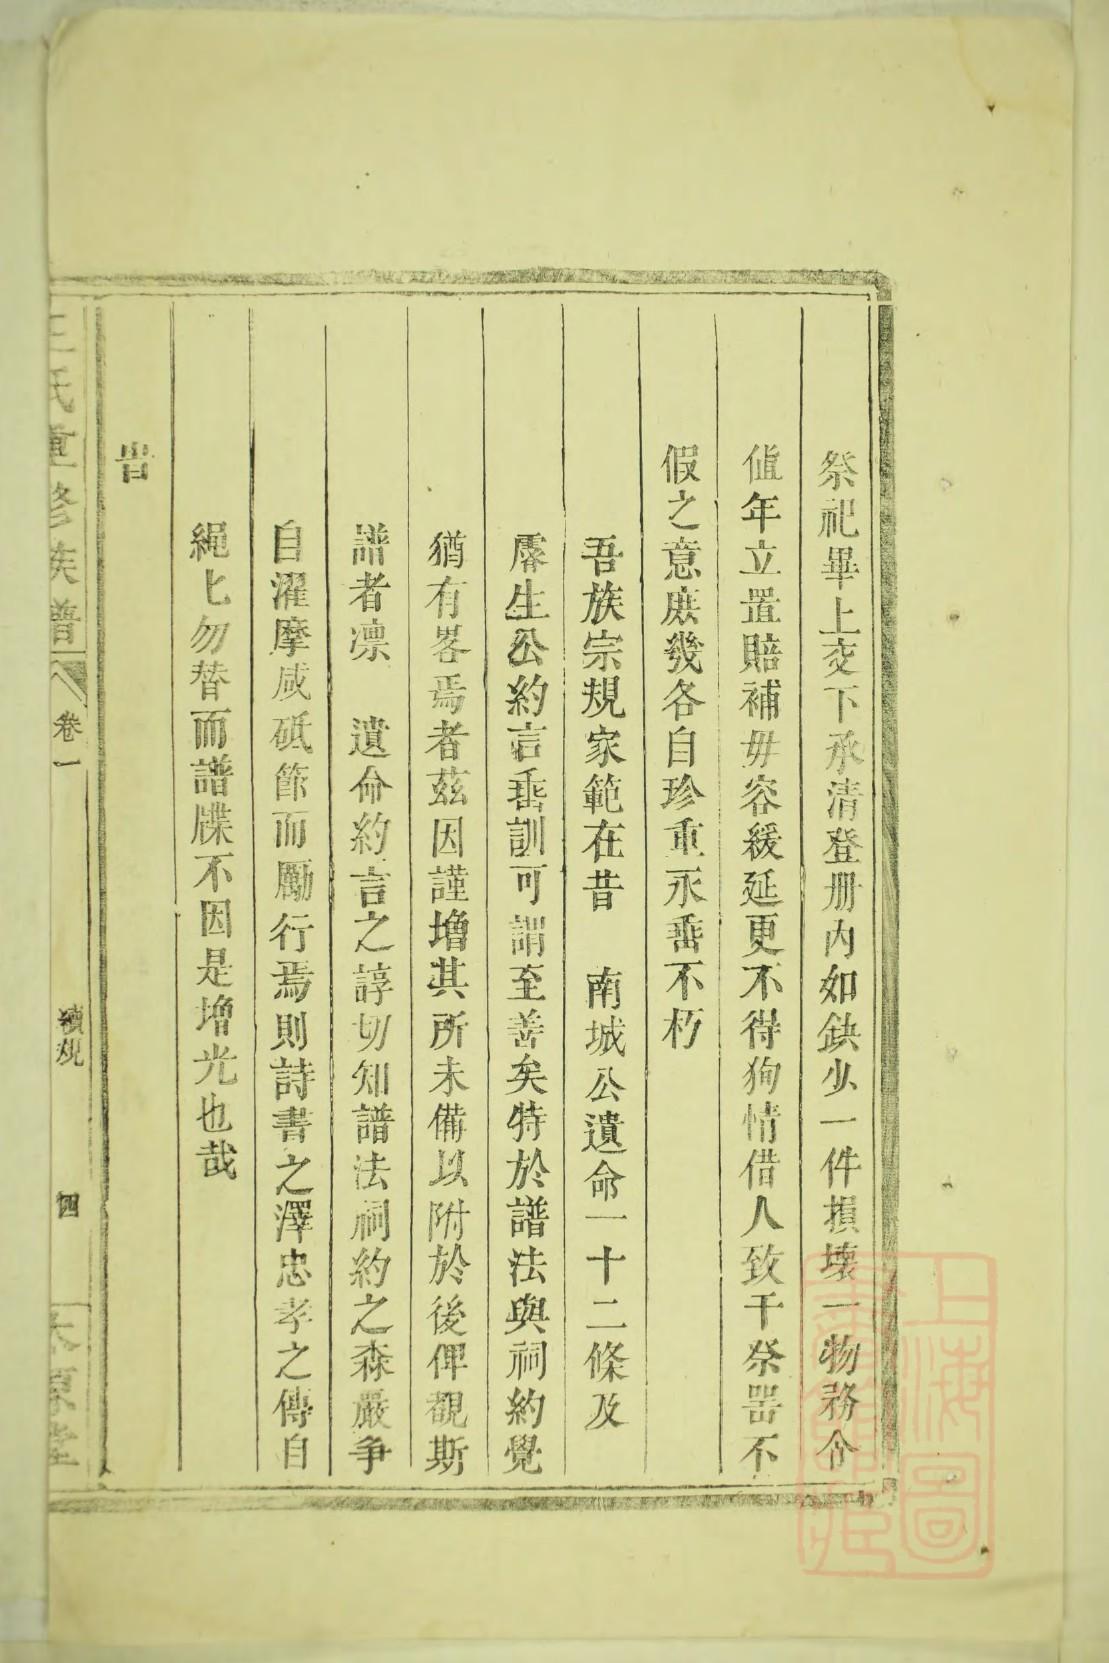 祭祀畢上交下承清登册內如鈌少一件損壞一物務令
值年立置賠補毋容緩延更不得狥情借人致干祭噐不
假之意庶幾各自珍重永垂不朽
吾族宗規家範在昔 南城公遺命一十二條及
廩生公約言垂訓可謂至善矣特於譜法與祠約覺
猶有畧焉者茲因謹增其所未備以附於後俾覩斯
譜者凛 遺命約言之諄切知譜法祠約之森嚴争
自濯摩咸砥節而勵行焉則詩書之澤忠孝之傳自
繩匕勿替而譜牒不因是增光也哉
旹
王氏重修族譜 卷一 續規 四 太原堂
上海圖書館藏